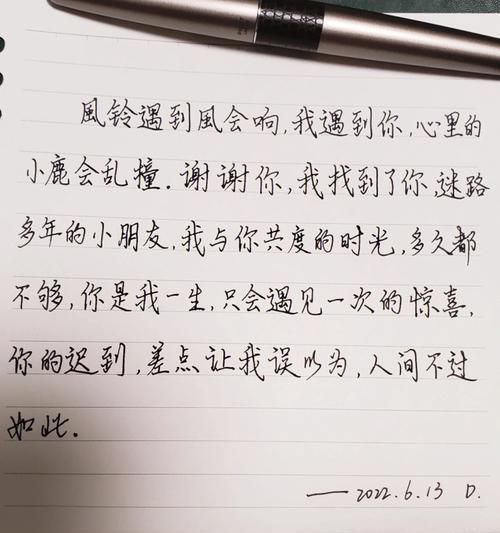 風铃遇到風会响,我遇到你,心里的
小鹿会乱撞.谢谢你,我找到了你,迷路
多年的小朋友,我与你共度的时光,多久都
不够,你是我一生,只会遇见一次的惊喜,
你的迟到,差点让我误以为,人间不过
如此.
——2022.6.13 D.